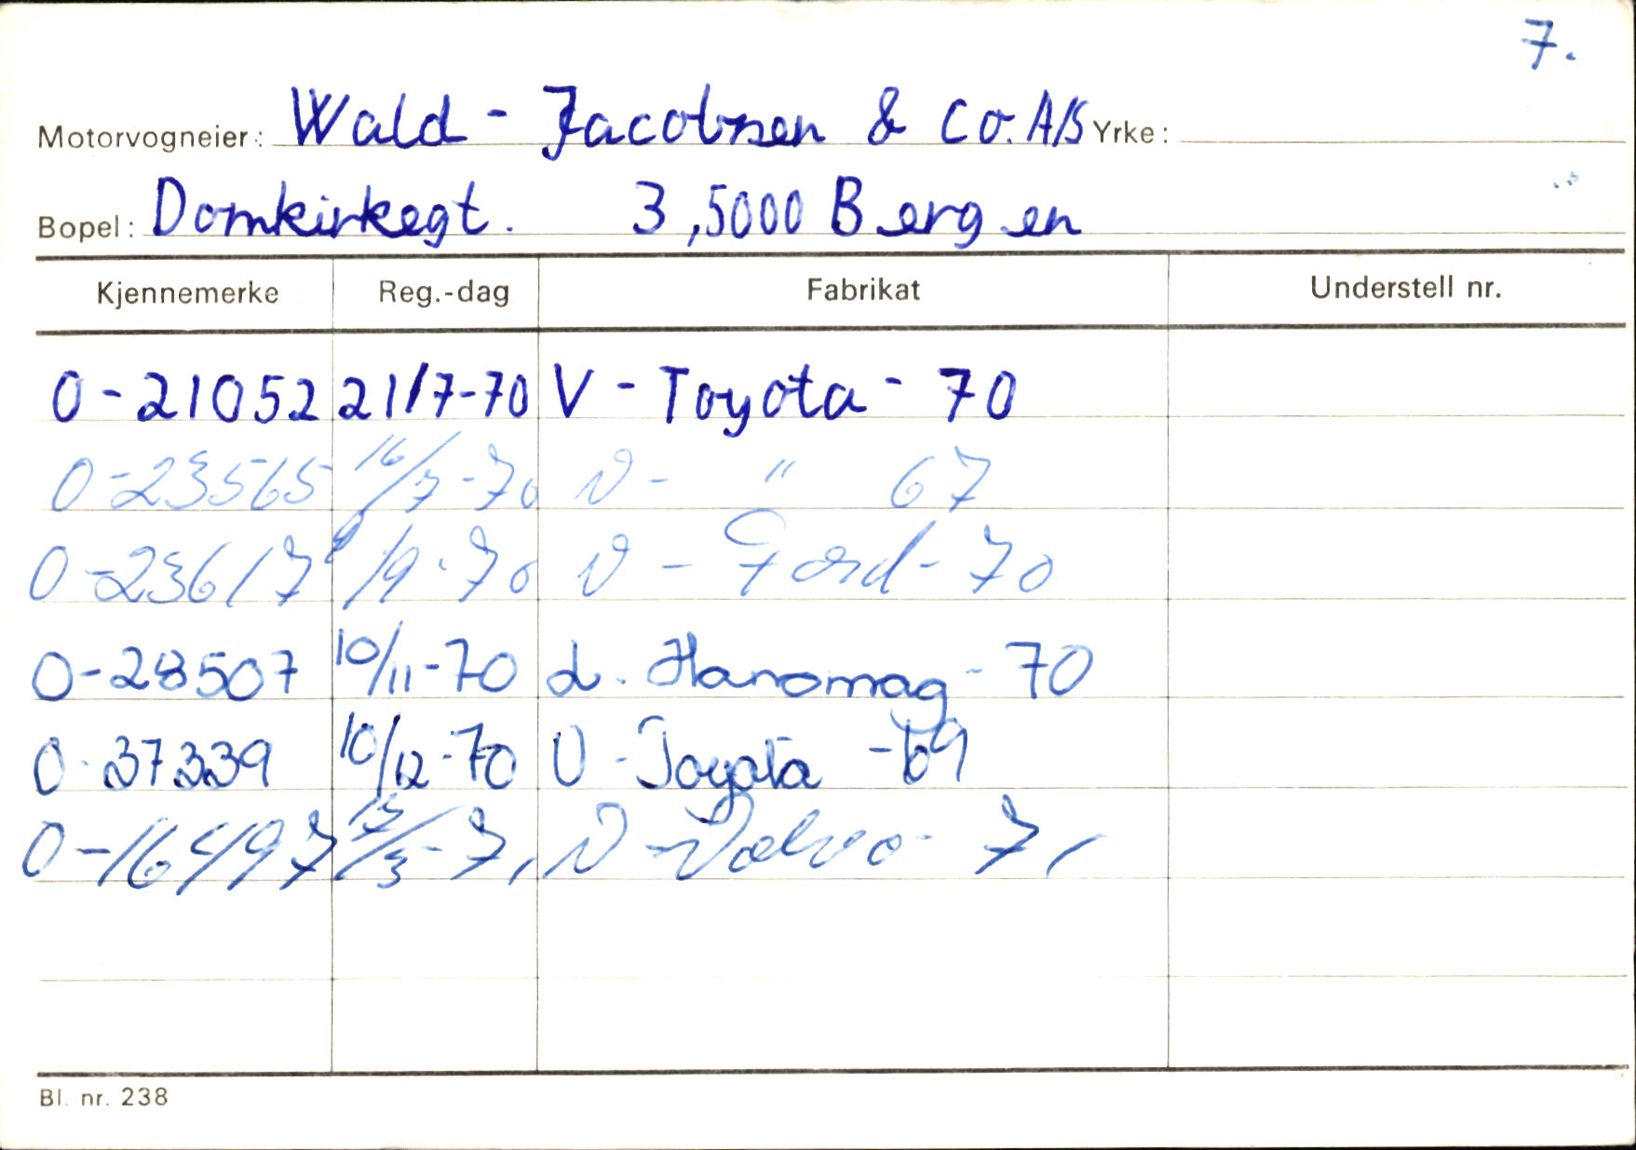 7.
Motorvogneier: Wald - Jacobsen & Co. A/S Yrke:
Bopel: Domkirkegt. 3, 5000 Bergen
Kjennemerke Reg.-dag Fabrikat Understell nr.
O-21052 21/7-70 V - Toyota - 70
O-23565 16/7-70 V - " 67
O-23617 9/9-70 V - Ford - 70
O-28507 10/11-70 L. Hanomag - 70
O-37339 10/12-70 V - Toyota - 69
O-16497 /3-71 V - Volvo - 71
Bl. nr. 238